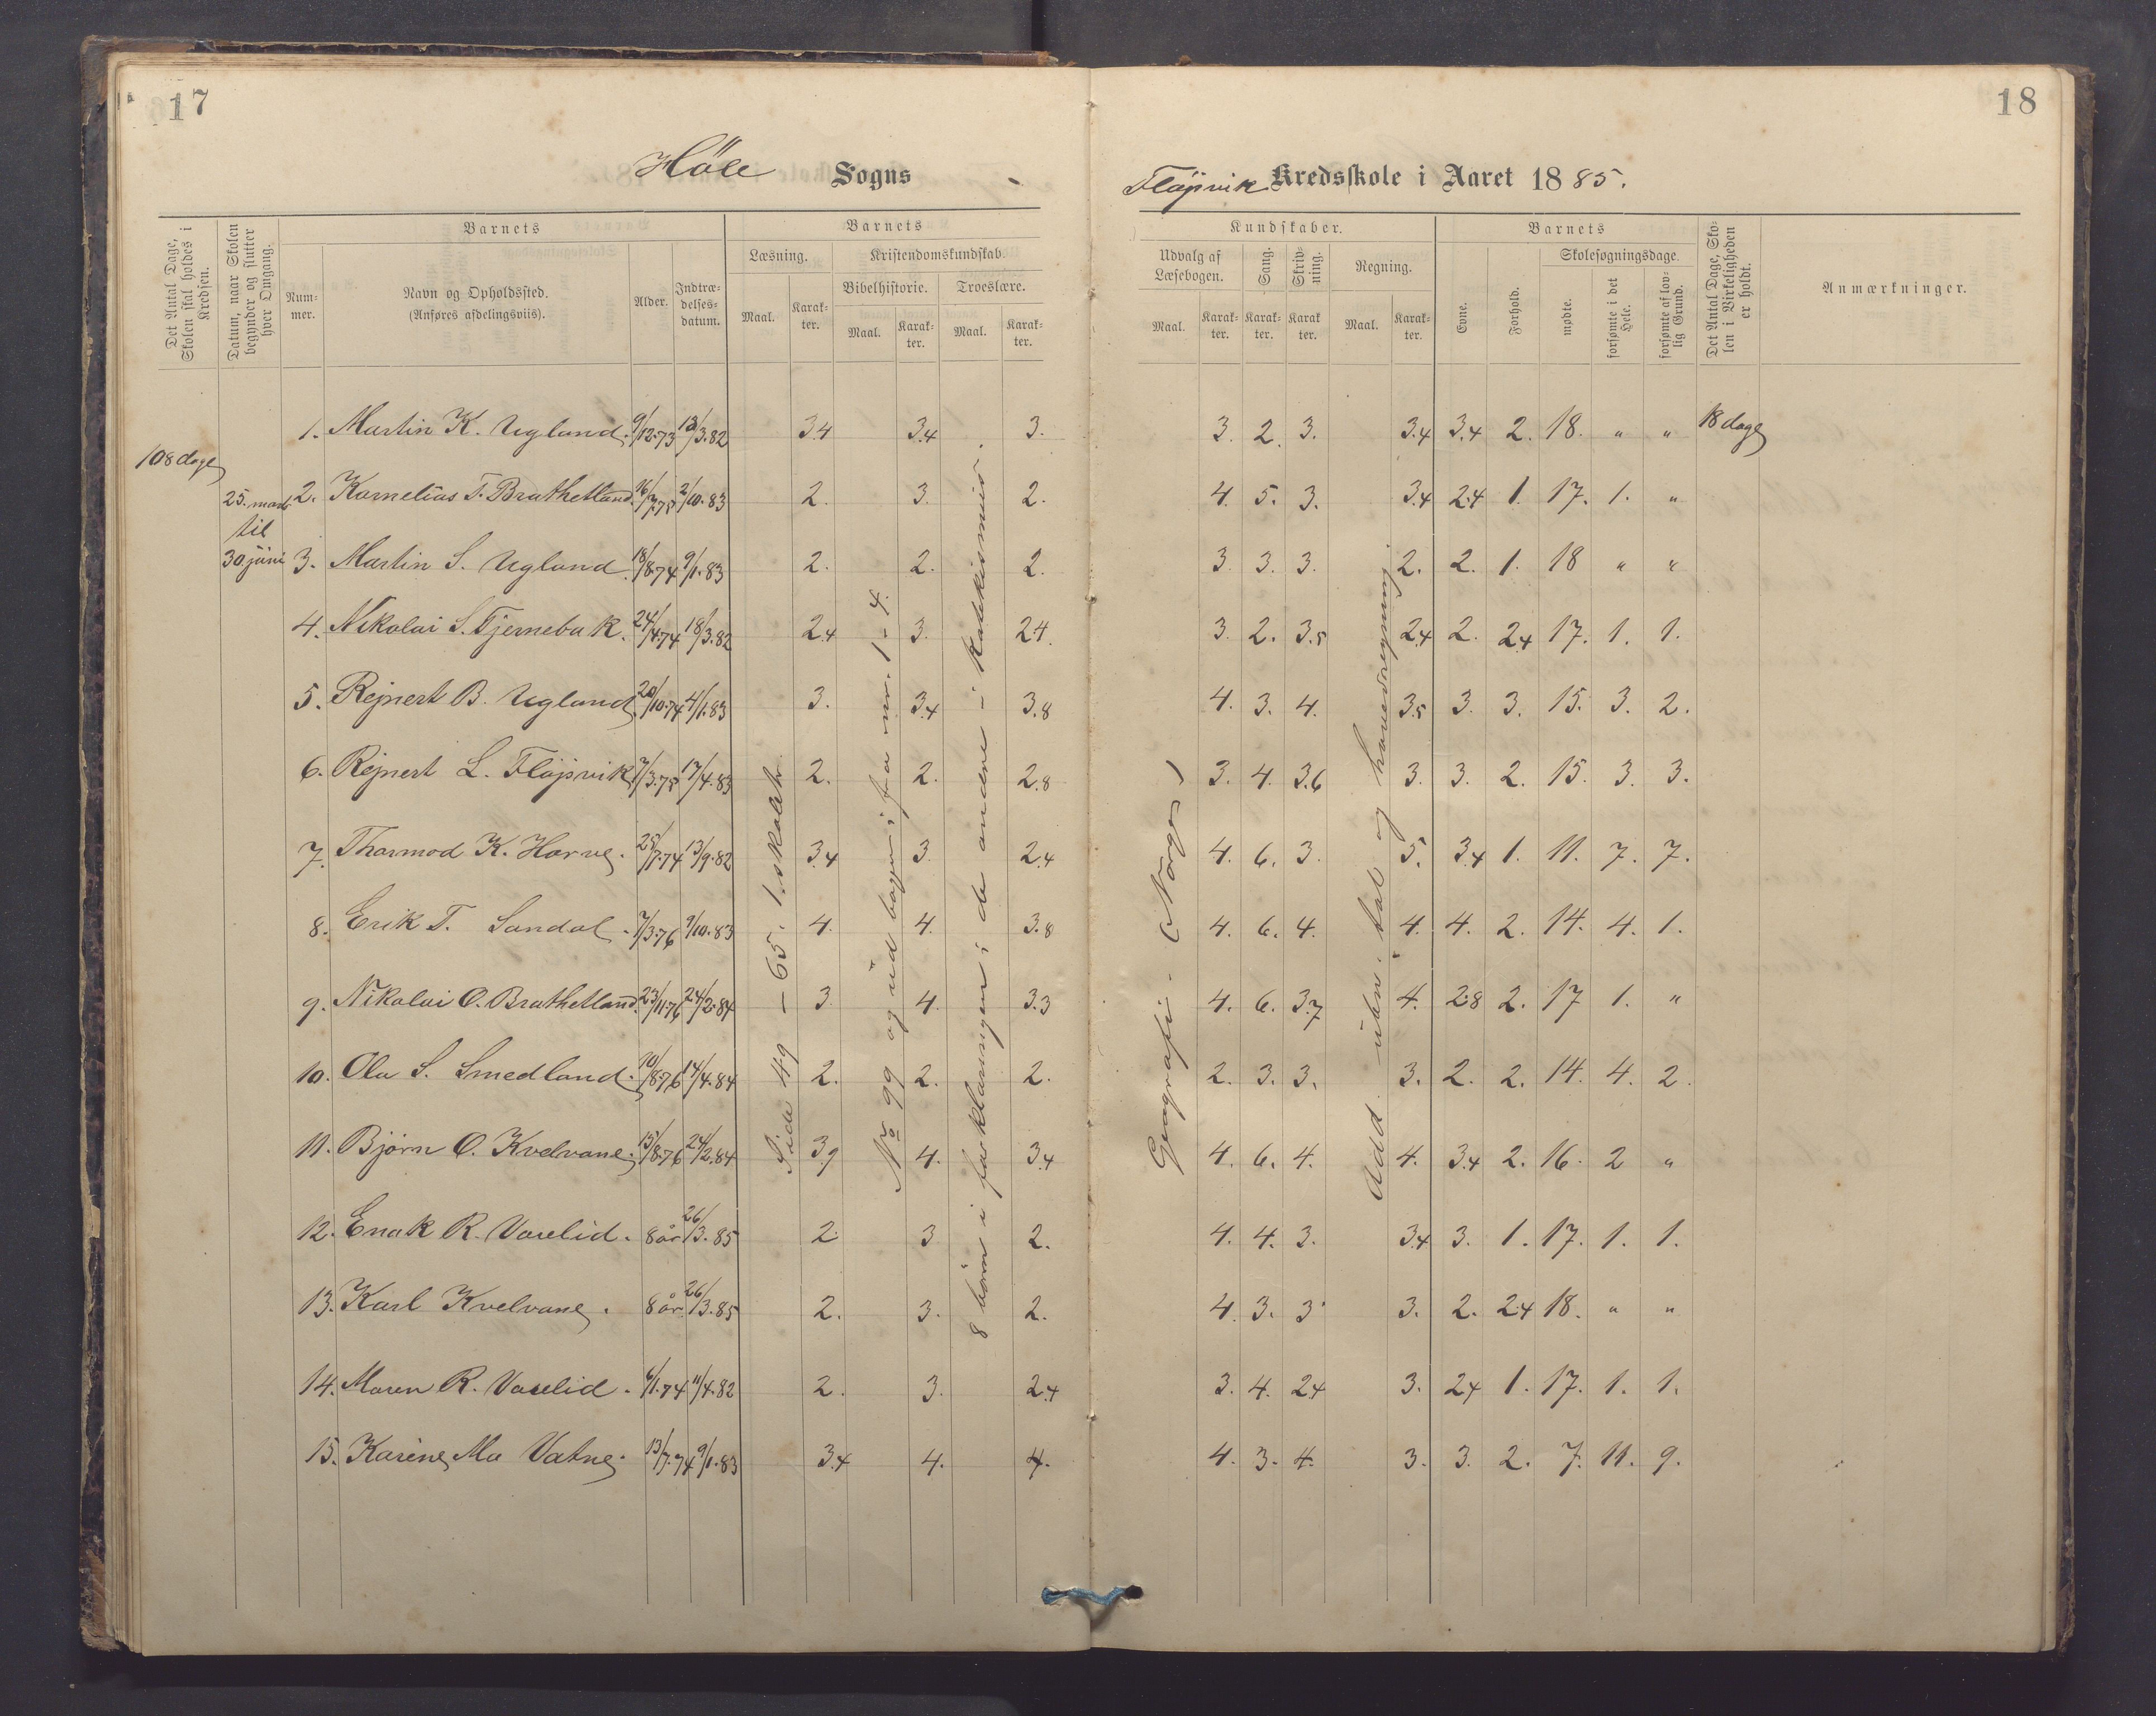 17
18
Höle Sogns
Fløjsvik Kredsskole i Aaret 1885.
Det Antal Dage, Skolen skal holdes i Kredsen.
Datum, naar Skolen begynder og slutter hver Omgang.
Barnets
Num-
mer.
Navn og Opholdssted.
(Anføres afdelingsviis).
Alder.
Indtræ-
delses-
datum.
Barnets
Læsning.
Kristendomskundskab.
Bibelhistorie. Troeslære.
Maal. Karak-
ter. Maal. Karak-
ter. Maal. Karak-
ter.
Kundskaber.
Udvalg af
Læsebogen.
Sang.
Skriv-
ning.
Regning.
Maal. Karak-
ter. Karak-
ter. Karak
ter. Maal. Karak-
ter.
Barnets
Evne.
Forhold.
Skolesøgningsdage.
mødte.
forsømte i det Hele.
forsømte af lov-
lig Grund.
Det Antal Dage, Sko-
len i Virkeligheden
er holdt.
Anmærkninger.
108 dage
25. mars
til
30. juni
1. Martin K. Ugland. 9/12.73 13/3.82 3.4 3.4 3. 3. 2. 3. 3.4 3.4 2. 18. " " 18 dage
2. Kornelius T. Brathetland. 16/7.75 2/10.83 2. 3. 2. 4. 5. 3. 3.4 2.4 1. 17. 1. "
3. Martin S. Ugland. 18/8.74 9/1.83 2. 2. 2. 3. 3. 3. 2. 2. 1. 18 " "
4. Nikolai S. Tjernebak. 24/4.74 18/3.82 2.4 3. 2.4. 3. 2. 3.5 2.4 2. 2.4 17. 1. 1.
5. Rejnert B. Ugland 20/10.74 4/1.83 3. 3.4 3.8 4. 3. 4. 3.5 3. 3. 15. 3. 2.
6. Rejnert L. Fløjsvik 7/3.75 17/4.83 2. 2. 2.8 3. 4. 3.6 3. 3. 2. 15. 3. 3.
7. Thormod K. Horve. 25/7.74 13/9.82 3.4 3. 2.4 4. 6. 3. 5. 3.4 1. 11. 7. 7.
8. Erik T. Sandal. 7/3.76 9/10.83 4. 4. 3.8 4. 6. 4. 4. 4. 2. 14. 4. 1.
9. Nikolai O. Brathetland. 23/11.76 24/2.84 3. 4. 3.3 4. 6. 3.7 4. 2.8 2. 17 1. "
10. Ola S. Smedland. 10/8.76 14/4.84 2. 2. 2. 2. 3. 3. 3. 2. 2. 14. 4. 2.
11. Bjørn O. Kvelvane. 15/8.76 24/2.84 3.9 4. 3.4 4. 6. 4. 4. 3.4 2. 16. 2 "
12. Enok R. Vaselid. 8 år 26/3.85 2. 3 2. 4. 4. 3. 3.4 3. 1. 17. 1. 1.
13. Karl Kvelvane. 8 år 26/3.85 2. 3. 2. 4. 3. 3 3. 2. 2.4 18. " "
14. Maren R. Vaselid. 6/1.74 11/4.82 2. 3. 2.4 3. 4. 2.4 3. 2.4 1. 17. 1. 1.
15. Karine Ma Vatne. 13/7.74 9/1.83 3.4 4. 4. 4. 3. 4. 3. 3. 2. 7. 11. 9.
Side 49 – 65. 1. skoletr.
No 99 og ud bogen; fra nr. 1 – 4.
8 børn i forklaringen; de andre i katekismus.
Geografi. (Norge)
Add. uben. tal og hovedregning.